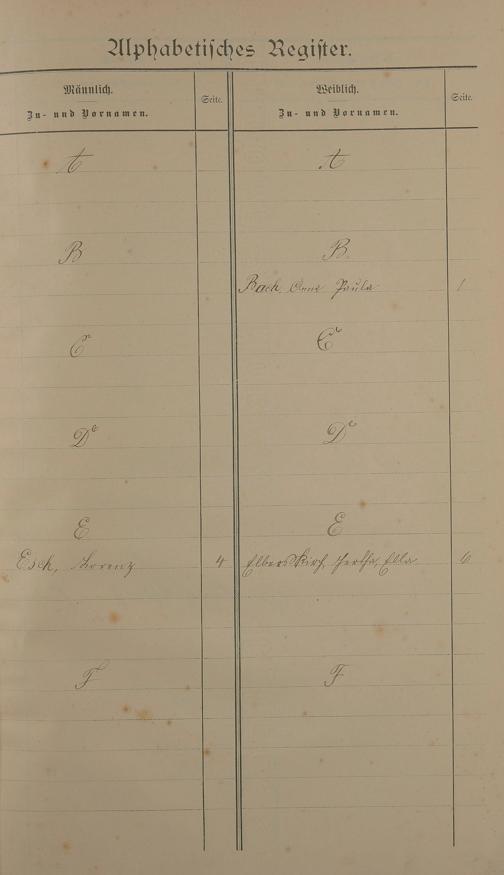 Alphabetisches Register.
Männlich. Seite. Weiblich. Seite.
Zu- und Vornamen. Zu- und Vornamen.
A A
B B.
Bach, Anna Paula 1
C C
D D
E E
Esch, Lorenz 4 Elberskirch, Hertha, Ella 6
F F